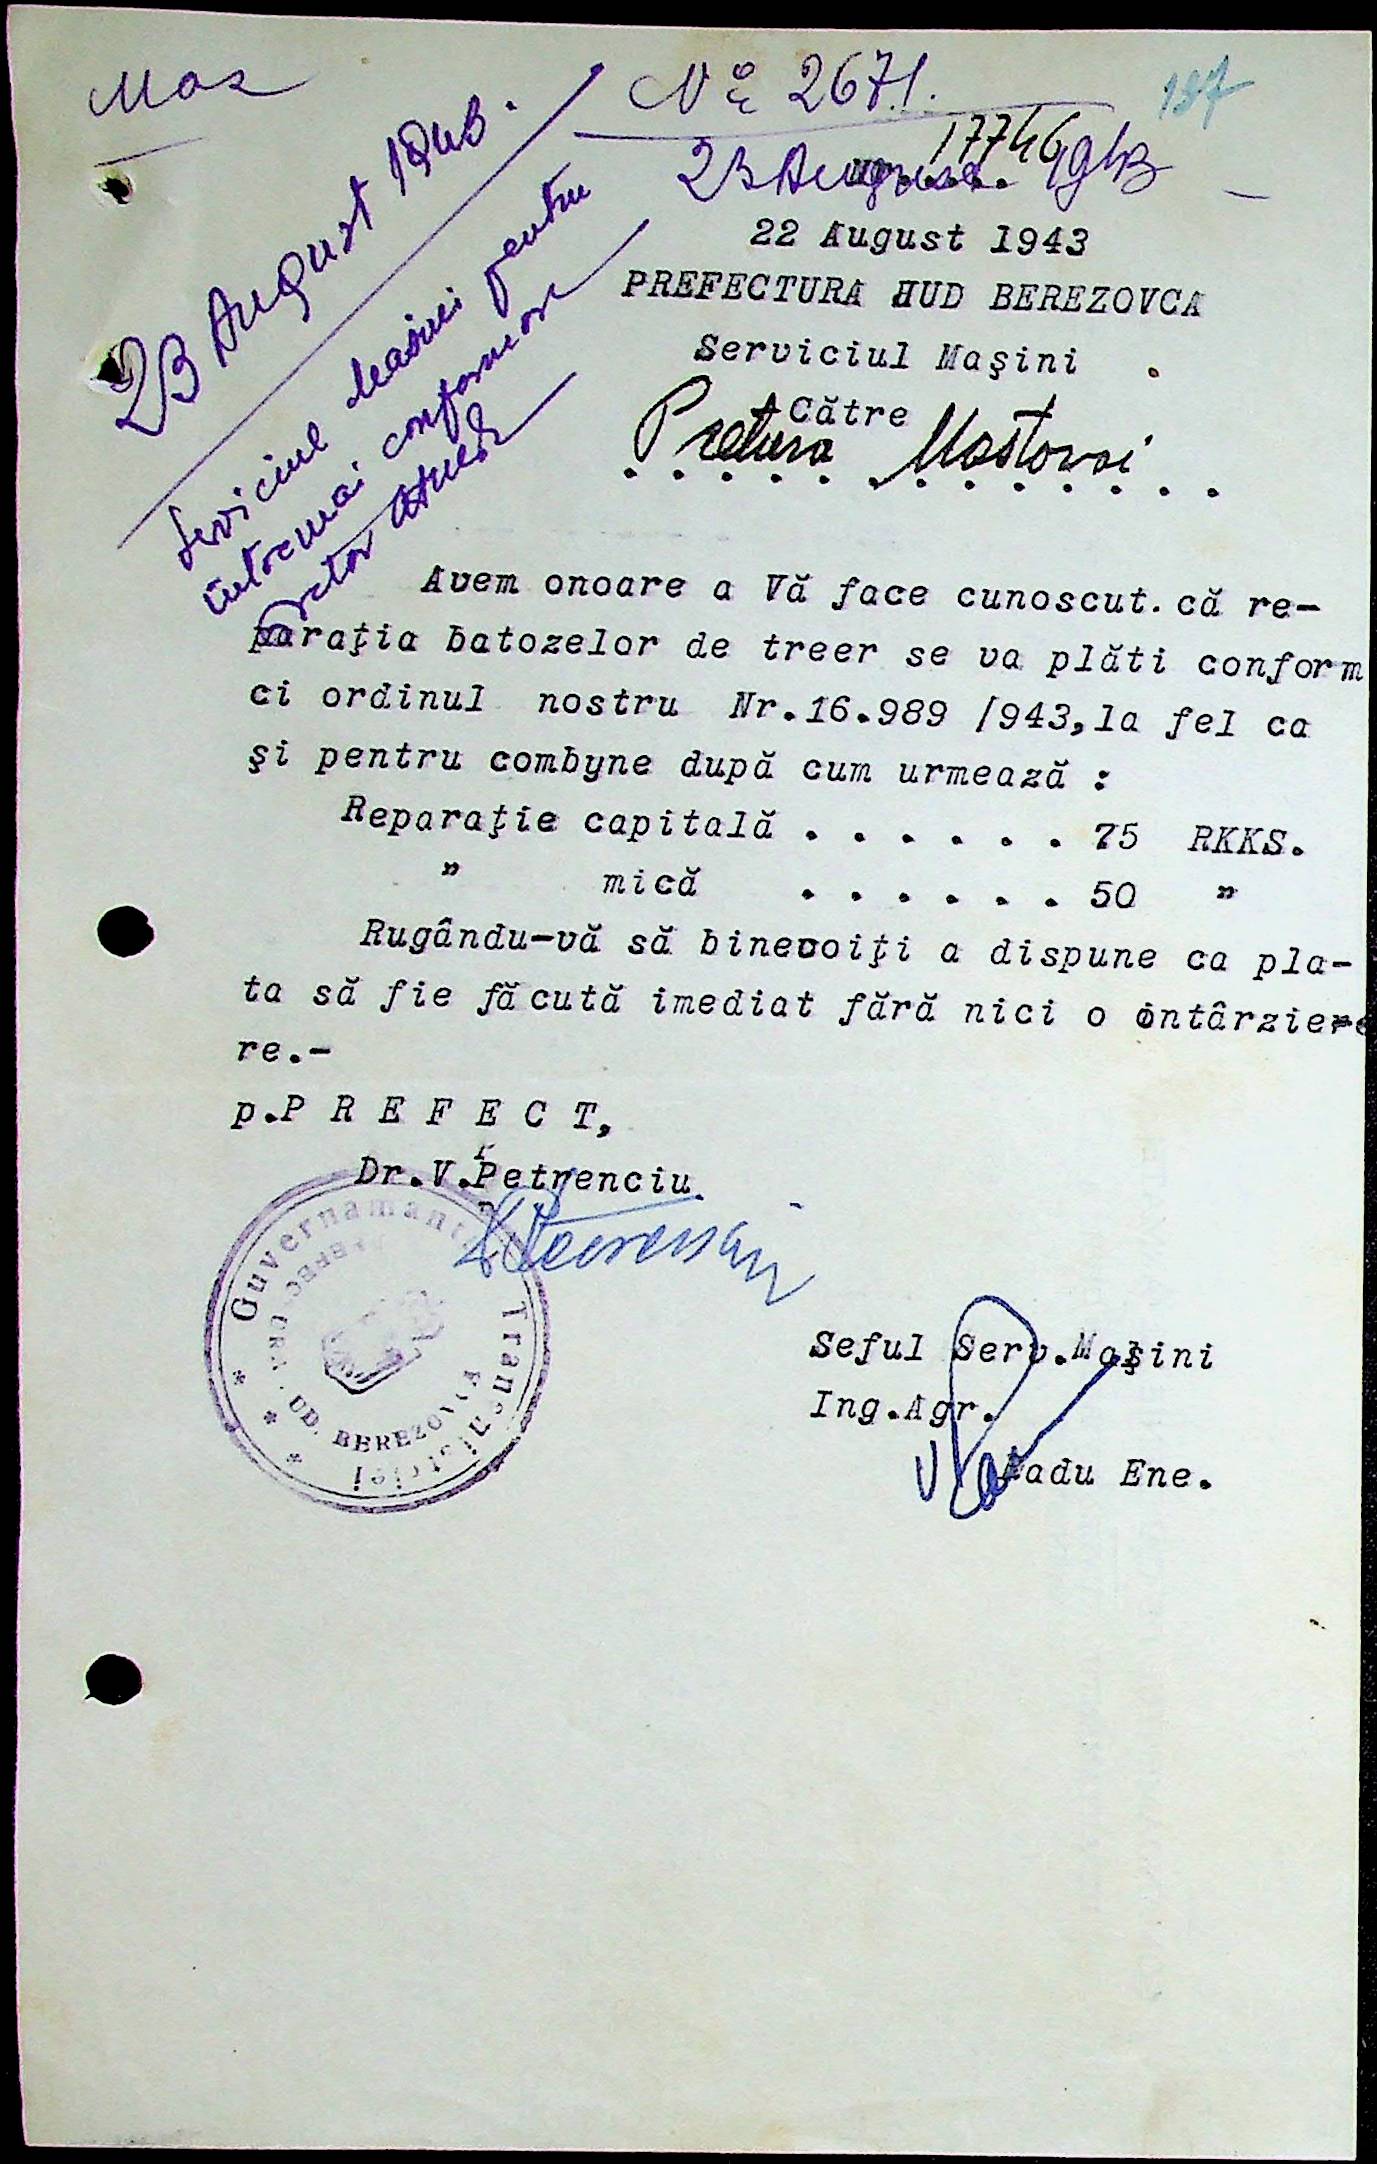 Mas
187
Nº 2671.
23 August 1943
17746
22 August 1943
PREFECTURA HUD BEREZOVCA
Serviciul Maşini
Către
Pretura Mostovoi
23 August 1943.
Serviciul Masini pentru
intocmai conformare
Avem onoare a Vă face cunoscut.că re-
paraţia batozelor de treer se va plăti conform
ci ordinul nostru Nr.16.989 /943,la fel ca
şi pentru combyne după cum urmează :
Reparaţie capitală . . . . . . 75 RKKS.
" mică . . . . . . 50 "
Rugându-vă să binevoiţi a dispune ca pla-
ta să fie făcută imediat fără nici o întârziere
re.-
p.P R E F E C T,
Dr.V.Petrenciu.
Guvernamantul Transnistriei
JUD. BEREZOVCA
Seful Serv.Maşini
Ing.Agr.
Radu Ene.